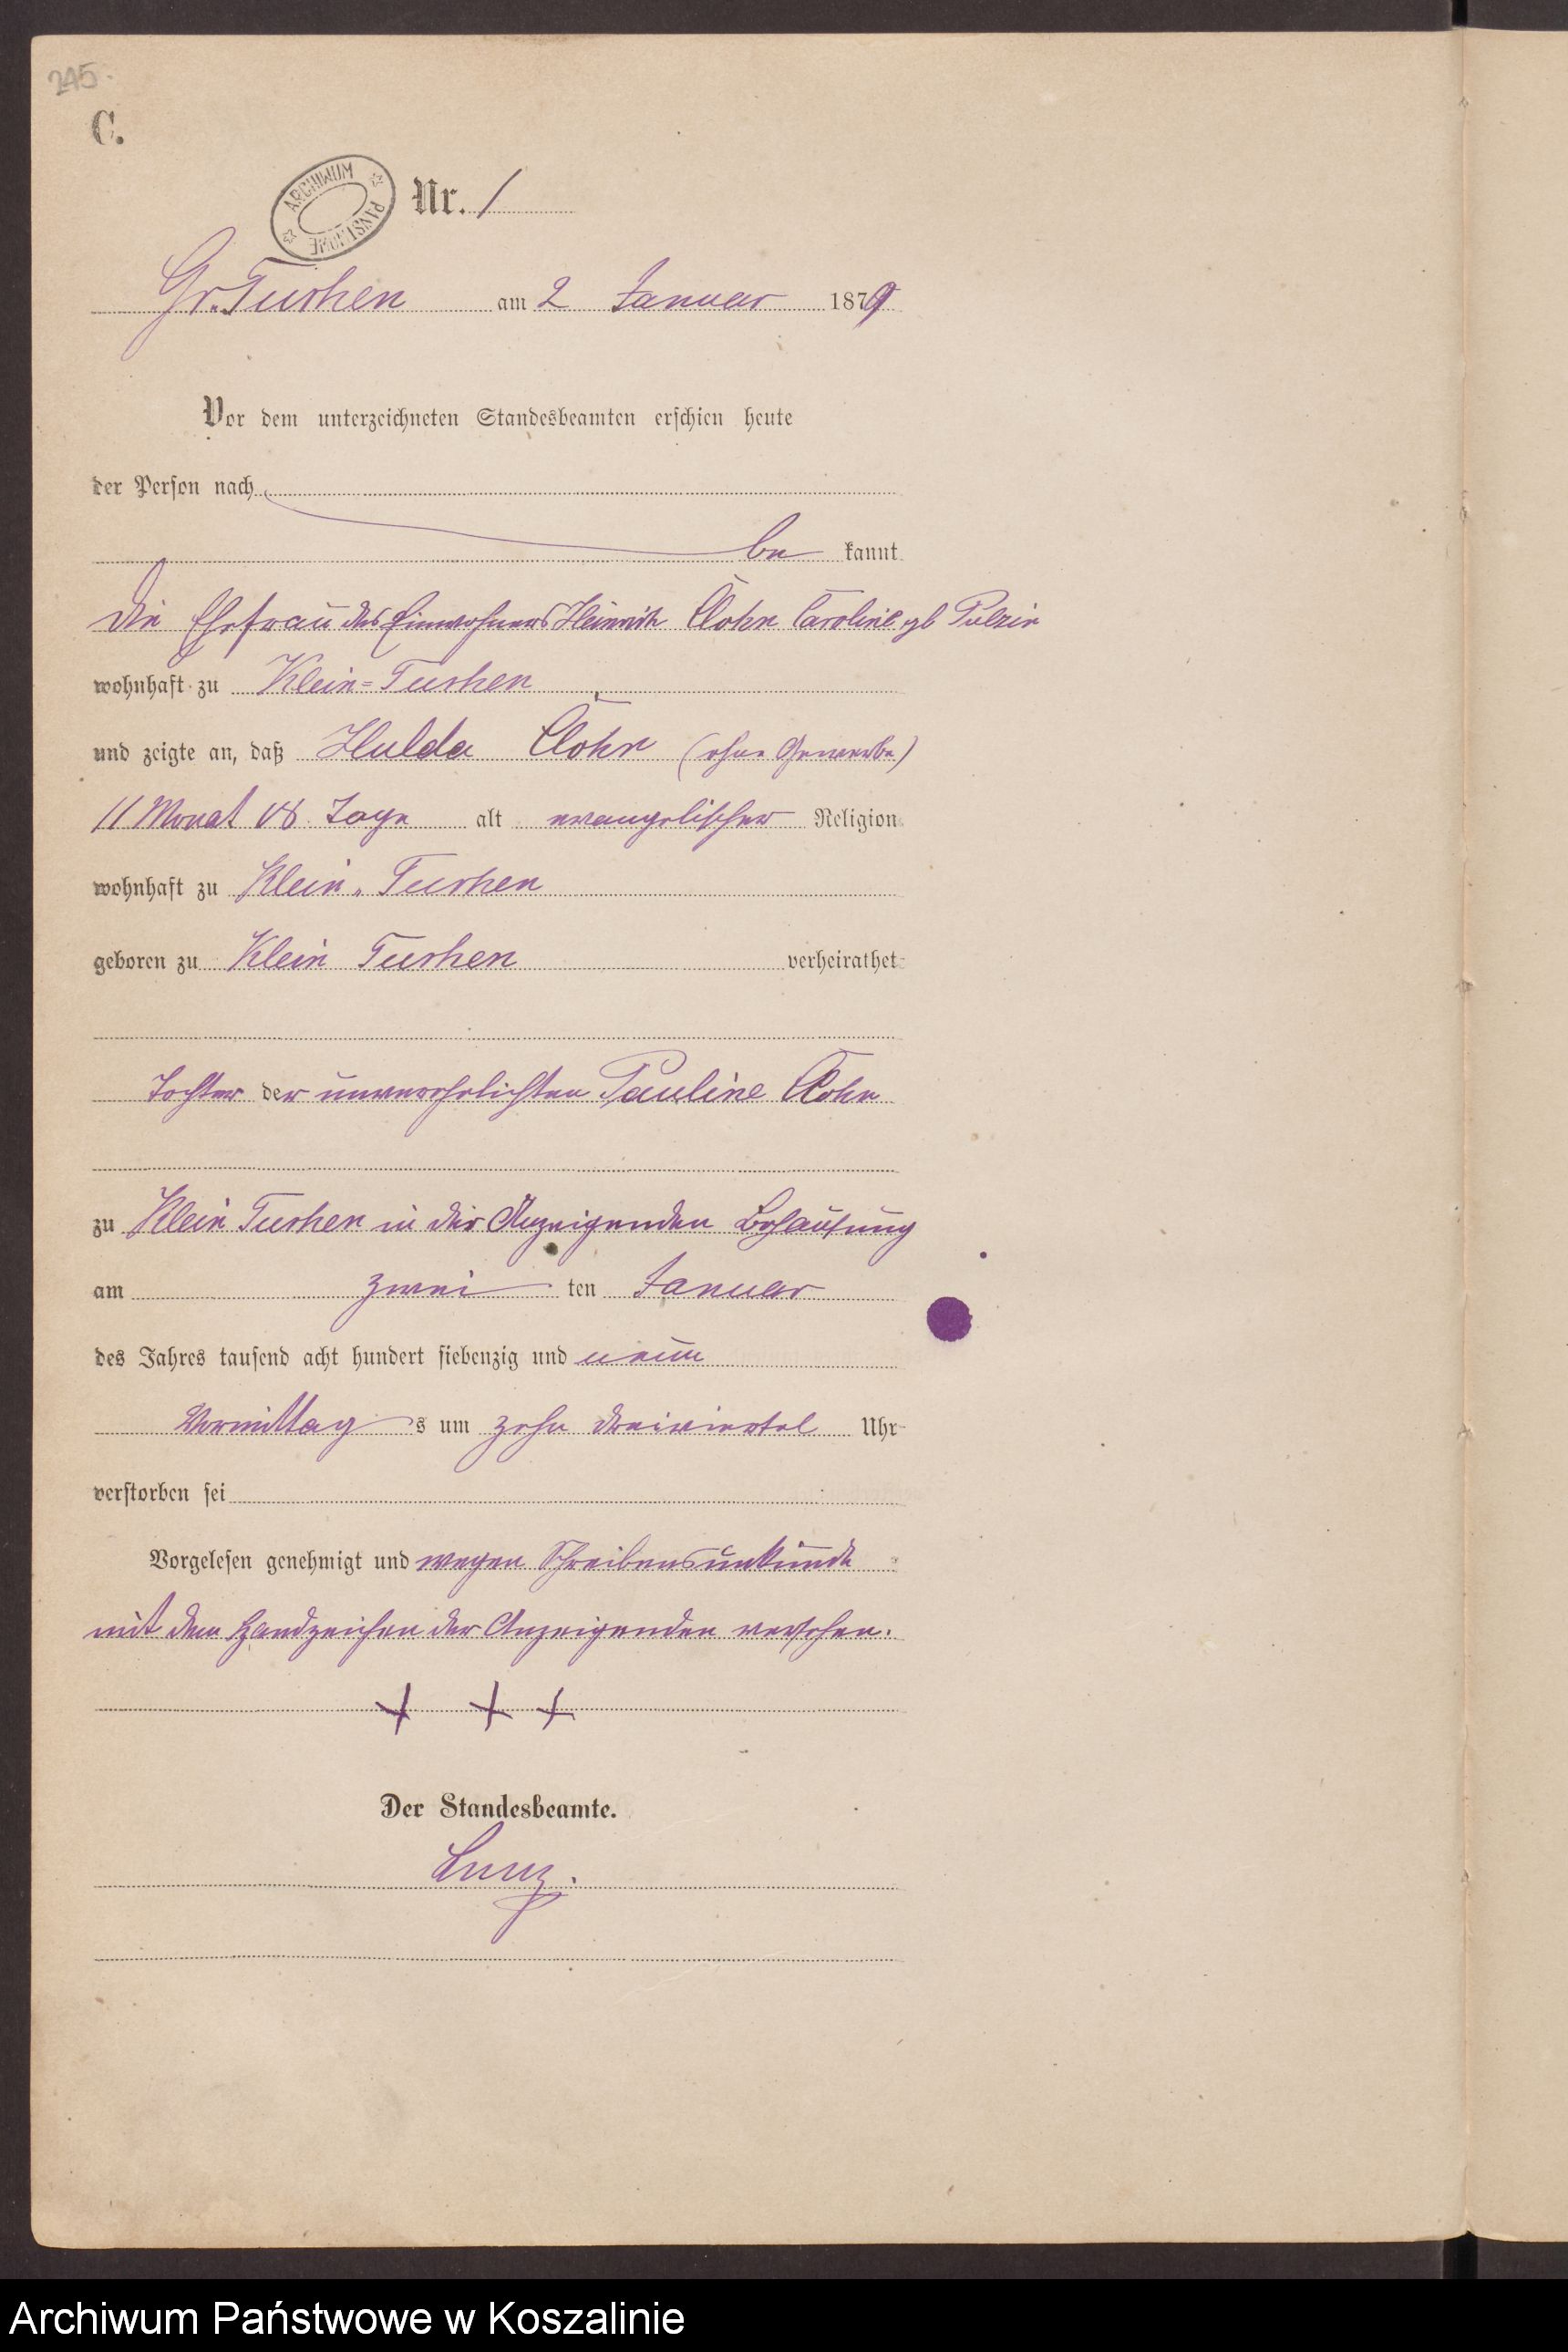 245.
C.
ARCHIWUM PAŃSTWOWE
Nr. 1
Gr. Tuchen am 2 Januar 1879
Vor dem unterzeichneten Standesbeamten erschien heute
der Person nach
be kannt
die Ehefrau des Einwohners Heinrich Caroline gb
wohnhaft zu Klein=Tuchen
und zeigte an, daß Hulda (ohne Gewerbe)
11 Monat 18 Tage alt evangelischer Religion
wohnhaft zu Klein-Tuchen
geboren zu Klein Tuchen verheirathet
Tochter der unverehelichten Pauline
zu Klein Tuchen in der Anzeigenden Behausung
am zwei ten Januar
des Jahres tausend acht hundert siebenzig und neun
Vormittag s um zehn dreiviertel Uhr
verstorben sei
Vorgelesen genehmigt und wegen Schreibensunkunde
mit dem Handzeichen der Anzeigenden versehen.
+ + +
Der Standesbeamte.
Archiwum Państwowe w Koszalinie